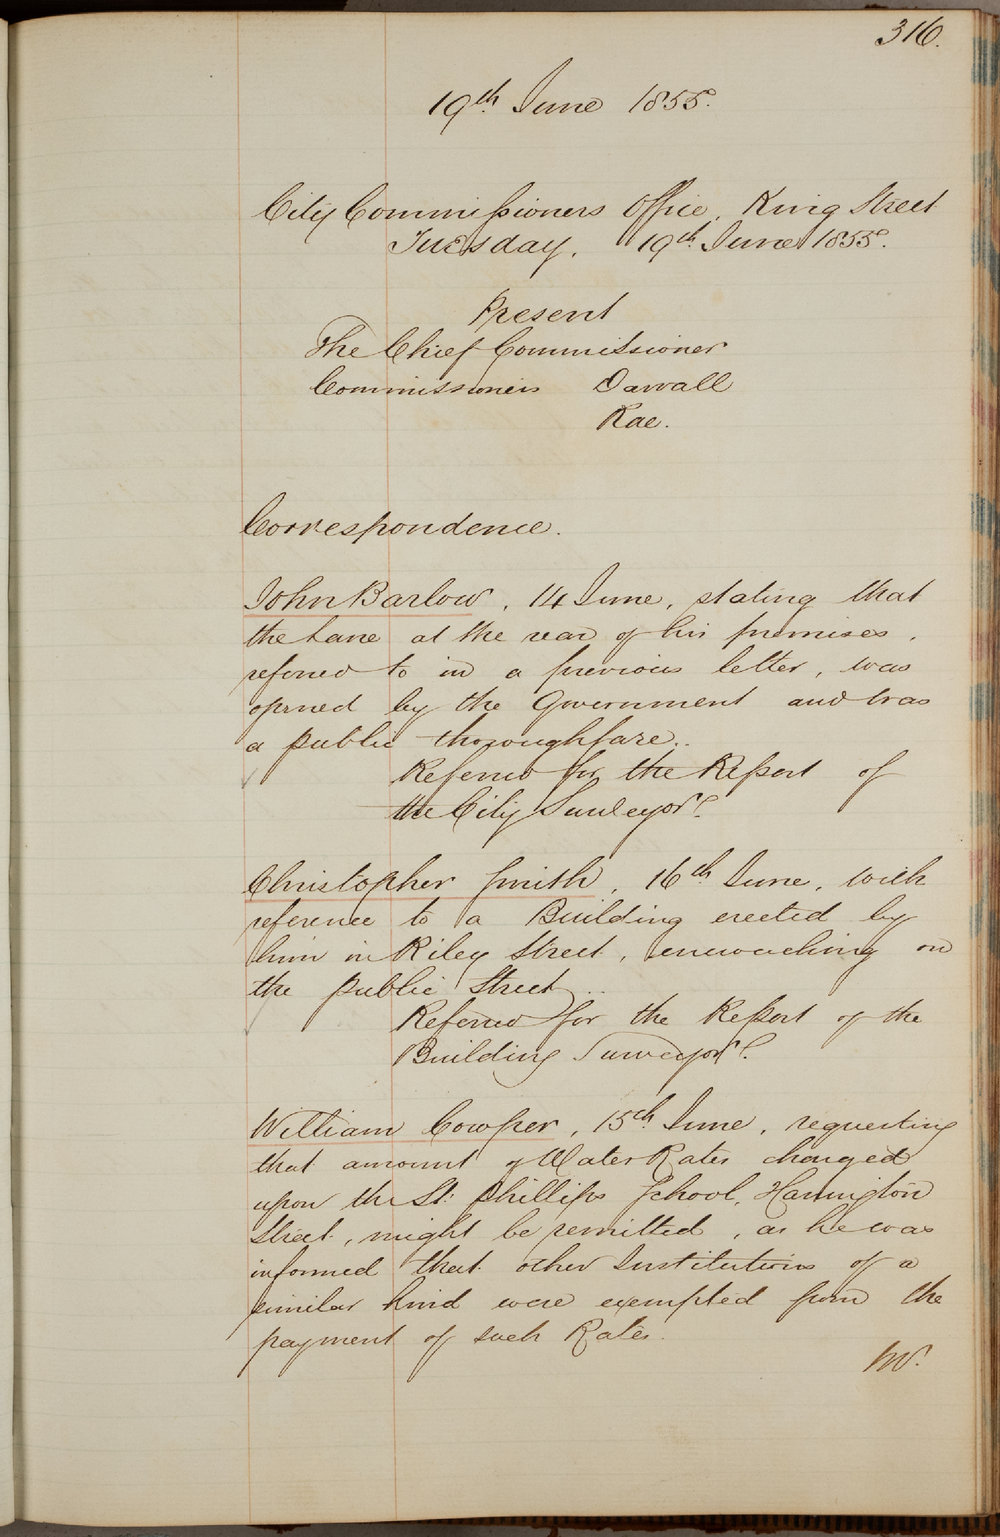 316.
19th. June 1855.
City Commissioners Office, King Street
Tuesday, 19th. June 1855.
Present
The Chief Commissioner
Commissioners Darvall
Rae.
Correspondence.
John Barlow, 14 June, stating that
the Lane at the rear of his premises,
referred to in a previous letter, was
opened by the Government and was
a public thoroughfare.
Referred for the Report of
the City Surveyor.
Christopher Smith, 16th June, with
reference to a Building erected by
him in Riley Street, encroaching on
the public Street.
Referred for the Report of the
Building Surveyor.
William Cowper, 15th. June, requesting
that amount of Water Rates charged
upon the St. Phillips School, Harrington
Street, might be remitted, as he was
informed that other Institutions of a
similar kind were exempted from the
payment of such Rates.
Mr.